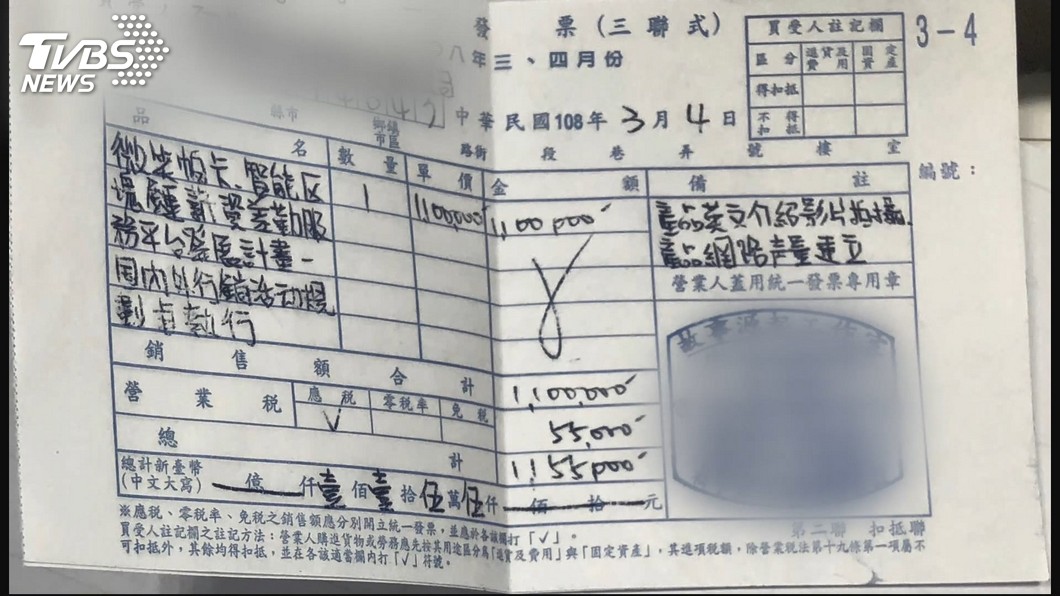 TVBS
NEWS
發 票（三聯式）
八年三、四月份
3-4
買受人註記欄
區分 進貨及費用 固定資產
得扣抵
不得扣抵
中華民國108年3月4日
縣市 鄉鎮市區 路街 段 巷 弄 號 樓 室
品 名 數 量 單 價 金 額 備 註
編號：
1 1,100,000 1,100,000
產品英文介紹影片拍攝.
產品網路聲量建立
務平台發展計畫-
国內外行銷活动規
劃與執行
營業人蓋用統一發票專用章
銷 售 額 合 計 1,100,000
營 業 稅 應 稅 零稅率 免 稅
V 55,000
總 計 1,155,000
總計新臺幣
(中文大寫) 億 仟壹佰壹拾伍萬伍仟 佰 拾 元
第二聯 扣抵聯
※應稅、零稅率、免稅之銷售額應分別開立統一發票，並應於各該欄打「√」。
買受人註記欄之註記方法：營業人購進貨物或勞務應先按其用途區分為「進貨及費用」與「固定資產」，其進項稅額，除營業稅法第十九條第一項屬不
可扣抵外，其餘均得扣抵，並在各該適當欄內打「√」符號。